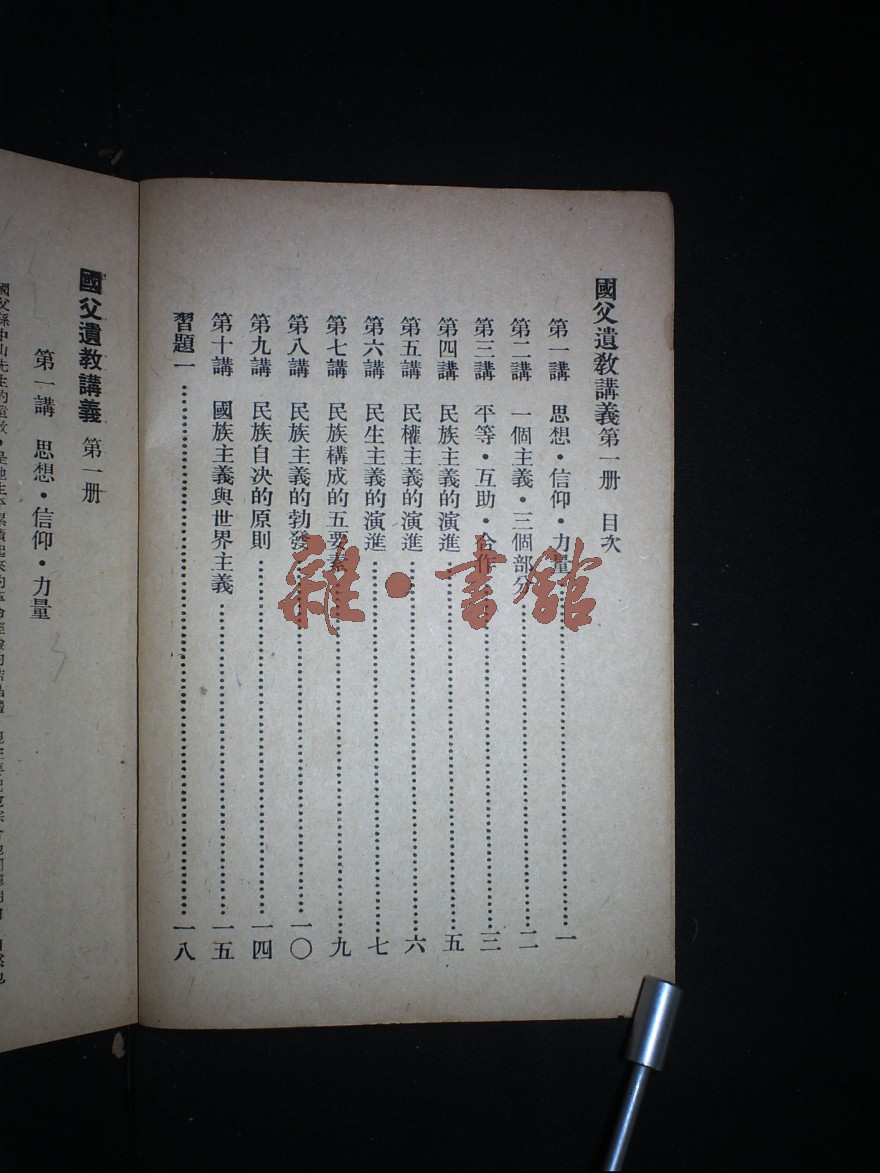 國父遺教講義第一册 目次
第一講 思想·信仰·力量……一
第二講 一個主義·三個部分……二
第三講 平等·互助·合作……三
第四講 民族主義的演進……五
第五講 民權主義的演進……六
第六講 民生主義的演進……七
第七講 民族構成的五要素……九
第八講 民族主義的勃發……一〇
第九講 民族自决的原則……一四
第十講 國族主義與世界主義……一五
習題一……一八
雜·書館
國父遺教講義 第一册
第一講 思想·信仰·力量